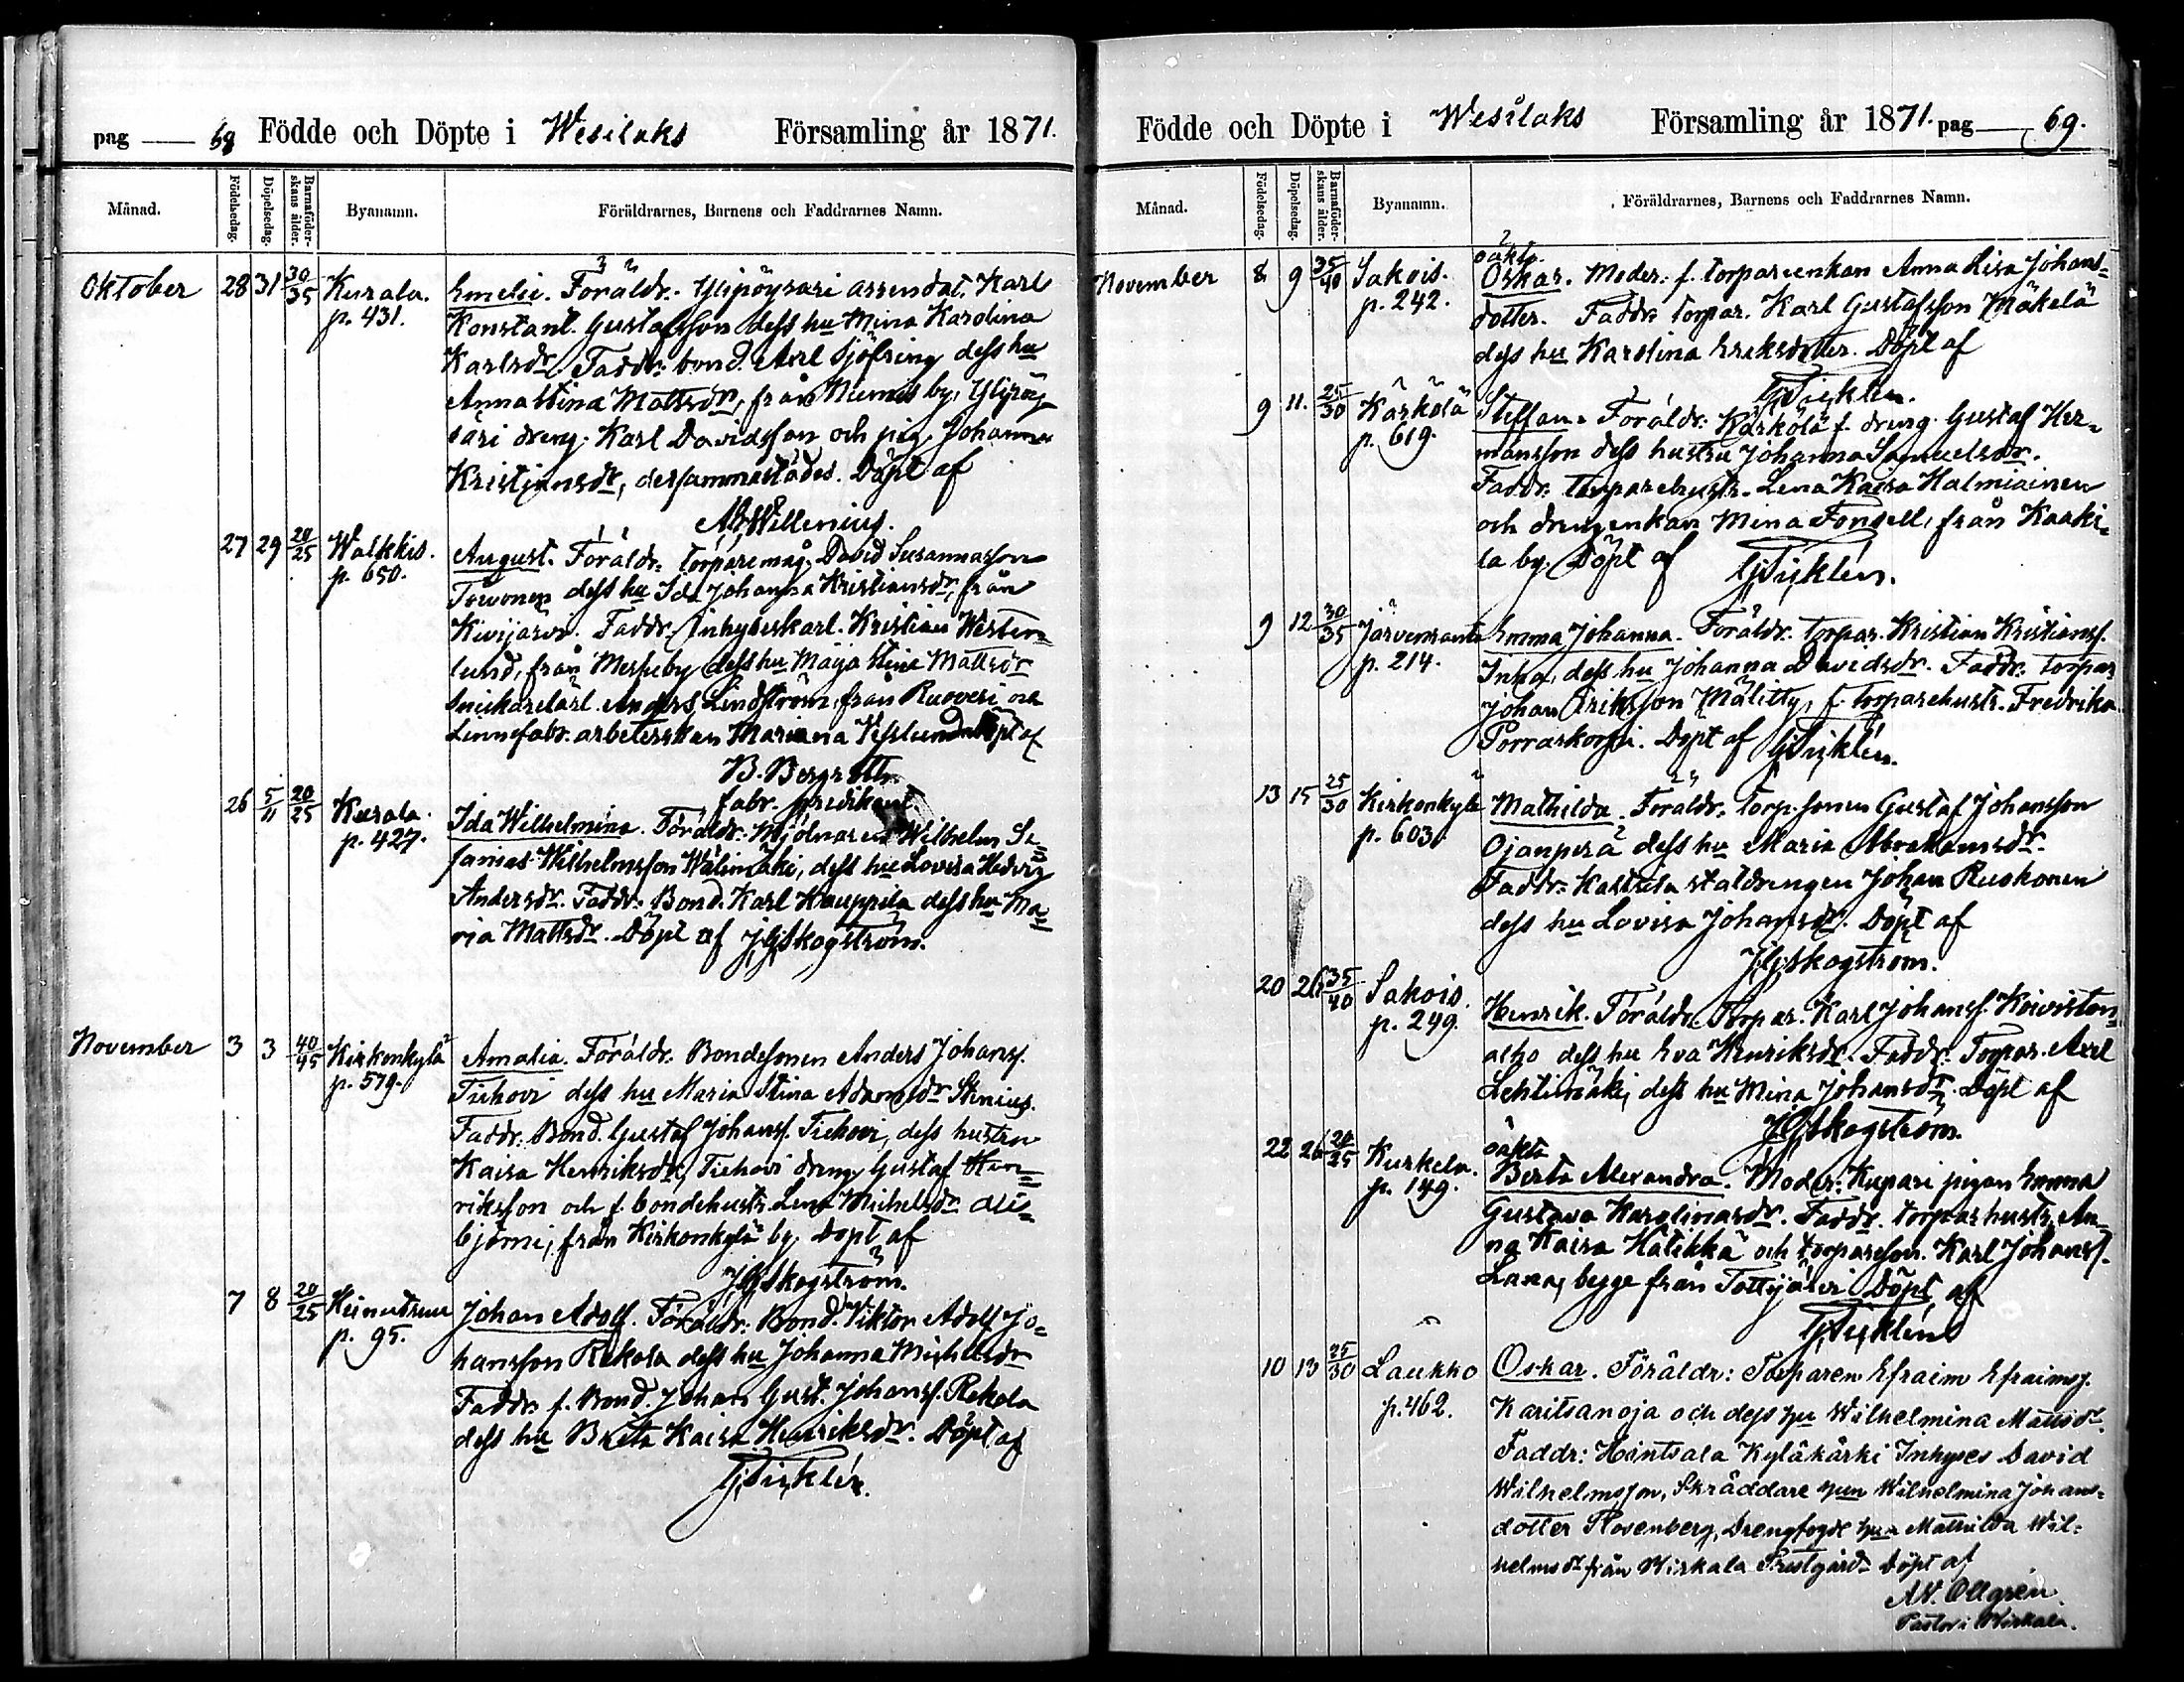 pag 68 Födde och Döpte i Wesilaks Församling år 1871.
Månad. Födelsedag. Döpelsedag. Barnaföderskans ålder. Byanamn. Föräldrarnes, Barnens och Faddrarnes Namn.
Oktober 28 31 30/35 Kurala. p. 431.
Emelie. Föräldr. Ylipöysäri arrendat. Karl
Konstant. Gustafsson dess hu Mina Karolina
Karlsdr. Faddr: bond. Axel Sjöfring dess hu
Anna Stina Mattsdr, från Niemis by, Ylipöy
säri dreng. Karl Davidsson och pig. Johanna
Kristjansdr, dersammastädes. Döpt af
Willenius.
27 29 20/25 Walkkis. p. 650.
August. Föräldr. torparemåg. David Susannasson
Toivonen dess hu Ida Johanna Kristiansdr, från
Kivijärvi. Faddr. Inhyseskarl. Kristian Western
lund, från by dess hu Maija Stina Mattsdr
Snickarelärl. Anders Lindström, från Ruoveri och
Linnefabr. arbeterskan Mariana Döpt af
B. Bergroth.
fabr. predikant
26 5/11 20/25 Kurala. p. 427.
Ida Wilhelmina. Föräldr: Mjölnaren Wilhelm Se=
fanias Wilhelmsson Wälimäki, dess hu Lovisa Hedvig
Andersdr. Faddr: Bond. Karl Kauppila dess hu Ma=
ria Mattsdr. Döpt af J.G.Skogström.
November 3 3 40/45 Kirkonkylä p. 579.
Amalia. Föräldr. Bondesonen Anders Johanss.
Tiehovi dess hu Maria Stina Adamsdr Stenius.
Faddr: Bond. Gustaf Johanss. Tiehovi, dess hustru
Kaisa Henriksdr, Tiehovi dreng Gustaf Hen=
riksson och f. bondehustr. Lena Michelsdr Ali=
björni, från Kirkonkylä by. Döpt af
J.G.Skogström.
7 8 20/25 Heinutsuu p. 95.
Johan Adolf. Föräldr: Bond. Viktor Adolf Jo=
hansson Rekola dess hu Johanna Michelsdr
Faddr. f. Bond. Johan Gust. Johanss. Rekola
dess hu Brita Kaisa Henriksdr. Döpt af
G.Ticklén.
Födde och Döpte i Wesilaks Församling år 1871. pag 69.
Månad. Födelsedag. Döpelsedag. Barnaföderskans ålder. Byanamn. Föräldrarnes, Barnens och Faddrarnes Namn.
November 8 9 35/40 Sakois. p. 242.
oäkta.
Oskar. Moder: f. torpareenkan Anna Lisa Johans=
dotter. Faddr: torpar. Karl Gustafsson Mäkelä
dess hu Karolina Eriksdotter. Döpt af
G.Ticklén.
9 11. 25/30 Karkola p. 619.
Steffan. Föräldr: Kärkölä f. dreng. Gustaf Her=
mansson dess hustru Johanna Samuelsdr.
Faddr: torparehustr. Lena Kaisa Halmiainen
och drengenkan Mina Fonsell, från Kaaki=
la by. Döpt af G.Ticklén.
9 12 30/35 Järvenranta p. 214.
Emma Johanna. Föräldr. torpar. Kristian Kristianss.
Inha, dess hu Johanna Davidsdr. Faddr: torpar
Johan Eriksson Mälitty, f. torparehustr. Fredrika
Porraskorpi. Döpt af G.Ticklén.
13 15 25/30 Kirkonkylä p. 603.
Mathilda. Föräldr. torp. sonen Gustaf Johansson
Ojanperä dess hu Maria Abrahamsdr.
Faddr: Kaltsila staldrengen Johan Ruohonen
dess hu Lovisa Johansdr. Döpt af
J.G.Skogström.
20 26 35/40 Sakois. p. 249.
Henrik. Föräldr. Torpar. Karl Johanss. Koiviston=
alho dess hu Eva Henriksdr. Faddr. Torpar. Axel
Lehtimäki, dess hu Mina Johansdr. Döpt af
J.G.Skogström.
22 26 20/25 Kurkela. p. 149.
oäkta
Berta Alexandra. Moder: Kupari pigan Emma
Gustava Karolinasdr. Faddr. torparhustr. An=
na Kaisa Hatikka och torpareson. Karl Johanss.
Lana, begge från Tottijärvi Döpt af
G.Ticklén
10 13 25/30 Laukko p. 462.
Oskar. Föräldr: Torparen Efraim Efraimss.
Karitsanoja och dess hu Wilhelmina Mattsdr.
Faddr: Hintsala Kyläkärki Inhyses David
Wilhelmsson, Skräddare hun Wilhelmina Johans=
dotter Rosenberg, Drengfogde hun Mathilda Wil=
helmsdr från Wirkala Prestgård. Döpt af
A.W. Ollgrén.
Pastor i Wirkala.